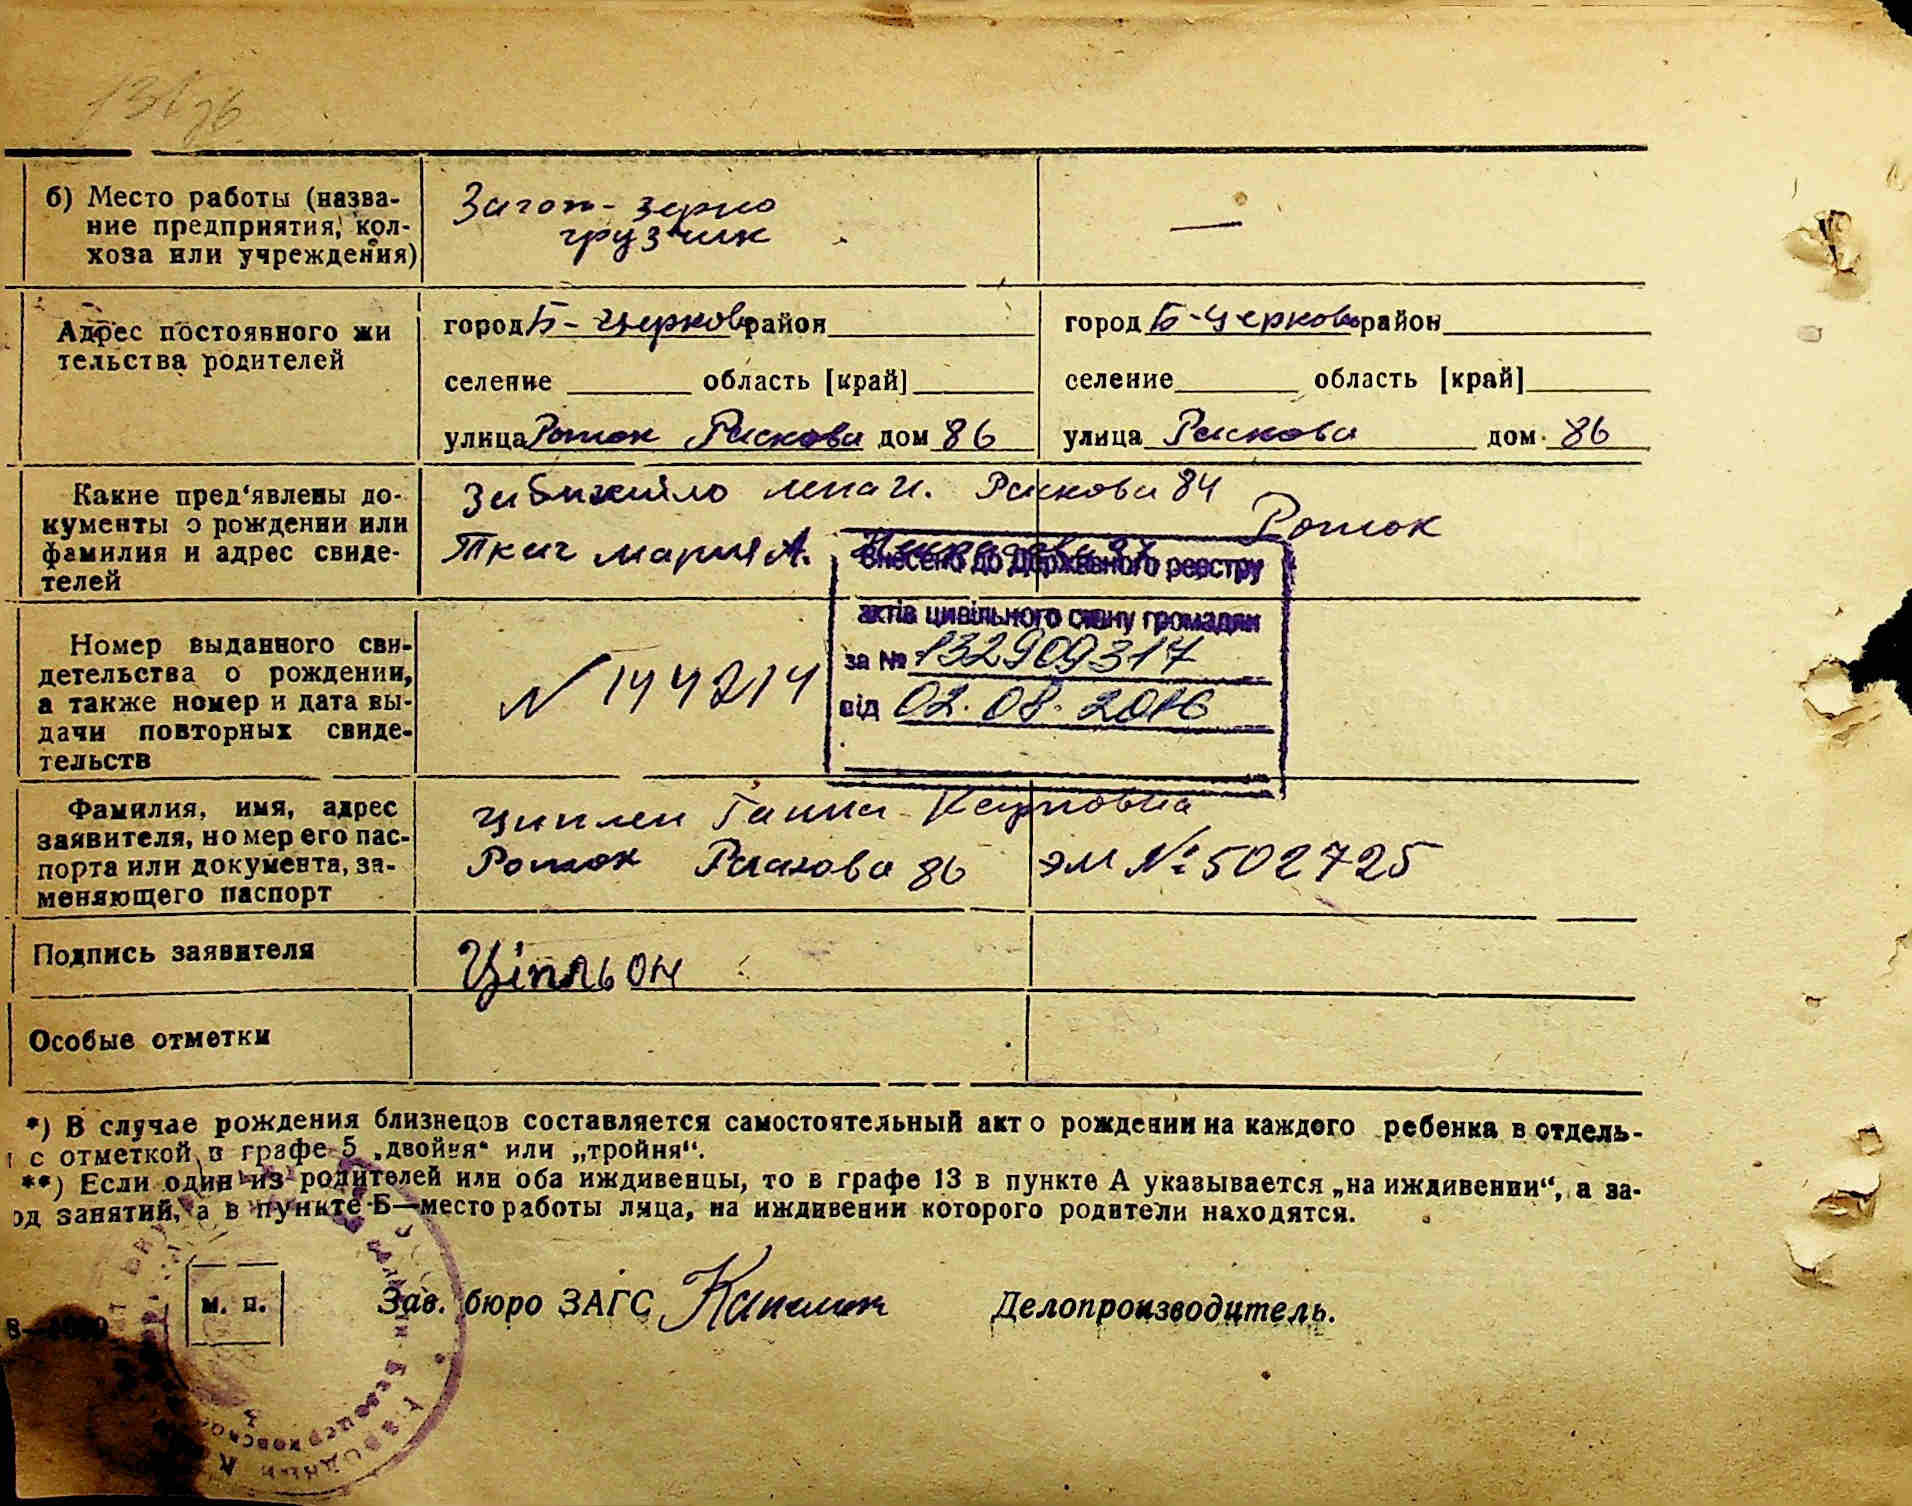 б) Место работы (назва-
ние предприятия, кол-
хоза или учреждения)
Загот-зерно
грузчик
—
Адрес постоянного жи
тельства родителей
город Б-Церковь район
селение область [край]
улица Роток Раскова дом 86
город Б-Церковь район
селение область [край]
улица Раскова дом 86
Какие пред'явлены до-
кументы о рождении или
фамилия и адрес свиде-
телей
Раскова 84
Роток
Ткач Мария А.
Внесено до Державного реєстру
актів цивільного стану громадян
за № 132909317
від 02.08.2016
Номер выданного сви-
детельства о рождении,
а также номер и дата вы-
дачи повторных свиде-
тельств
N 144214
Фамилия, имя, адрес
заявителя, номер его пас-
порта или документа, за-
меняющего паспорт
Ганна Карповна
Роток Раскова 86 ЭМ № 502725
Подпись заявителя
Ціпльон
Особые отметки
*) В случае рождения близнецов составляется самостоятельный акт о рождении на каждого ребенка в отдель-
с отметкой в графе 5 „двойня“ или „тройня“.
**) Если один из родителей или оба иждивенцы, то в графе 13 в пункте А указывается „на иждивении“, а за-
од занятий, а в пункте Б—место работы лица, на иждивении которого родители находятся.
м. п.
Зав. бюро ЗАГС
Делопроизводитель.